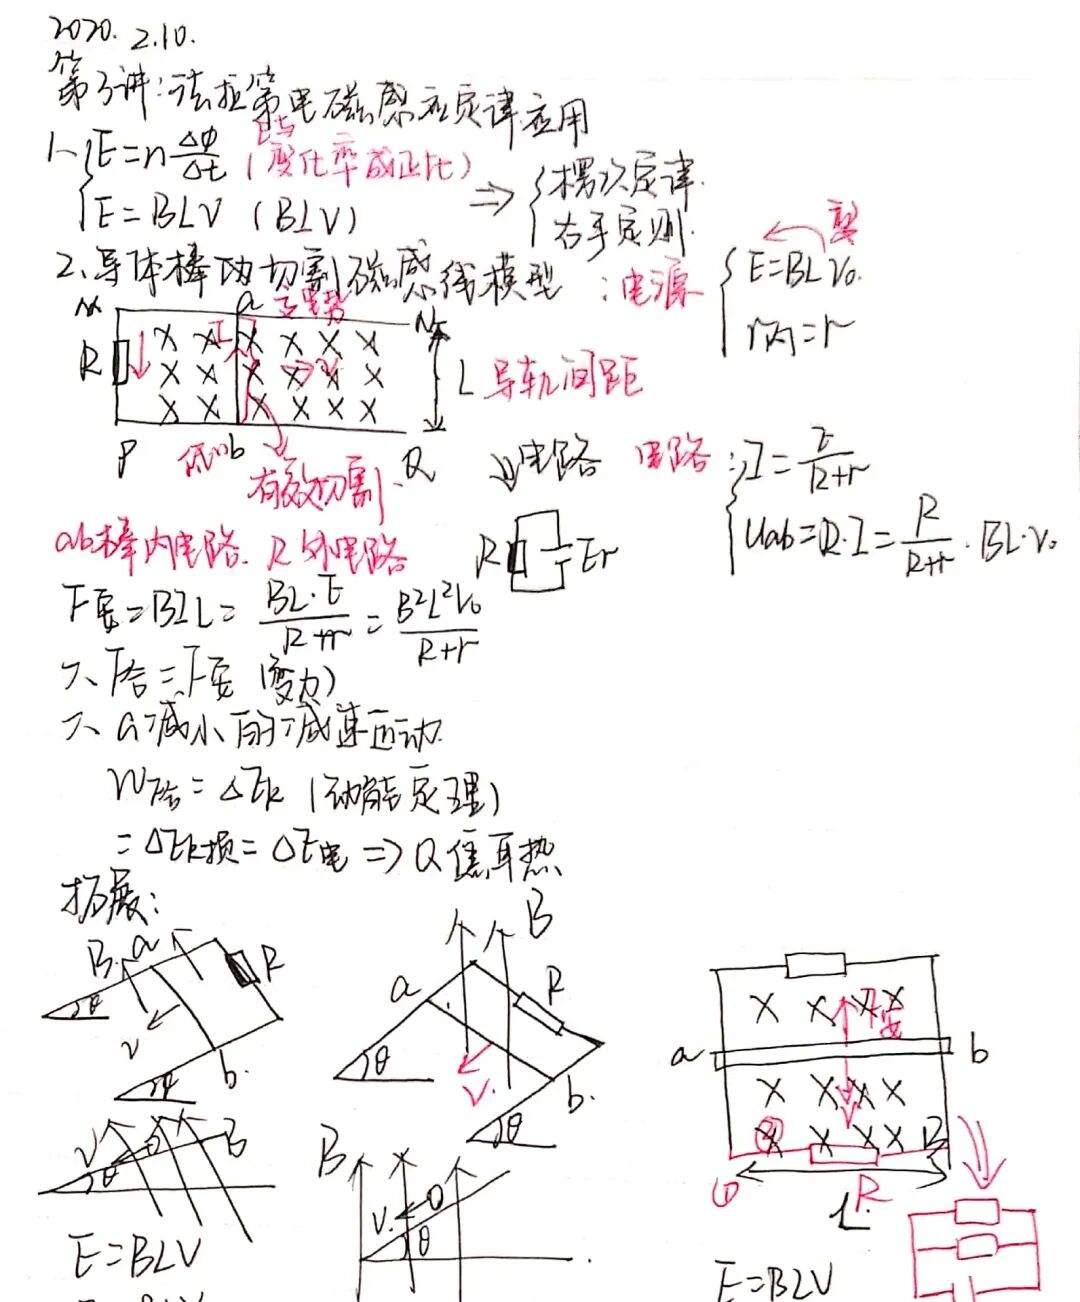 2020. 2.10.
第3讲:法拉第电磁感应定律应用
1、{E=n ΔΦ/Δt (E与变化率成正比)
E=BLV (BLV) => {楞次定律.
右手定则.
2、导体棒切割磁感线模型 : 电源 {E=BLV₀.
r内=r
M a N
× × × × × ×
R × × × × × L 导轨间距
× × × × × ×
P b Q
有效切割.
↓电路 电路: {I=E/(R+r)
Uab=R·I=R/(R+r)·BL·V₀
ab棒内电路. R外电路 R Er
F安=BIL=BL·E/(R+r)=B²L²V₀/(R+r)
F合=F安 (变力)
a减小的减速运动.
WF合=ΔEk (动能定理)
=ΔEk损=ΔE电=>Q焦耳热
拓展:
B a R
θ V b
θ
B a R
θ V. b.
θ
× × × × F安
a b
× × × × V
× × × × B
① ② R
L
V θ B
E=BLV
B V. θ
E=BLV